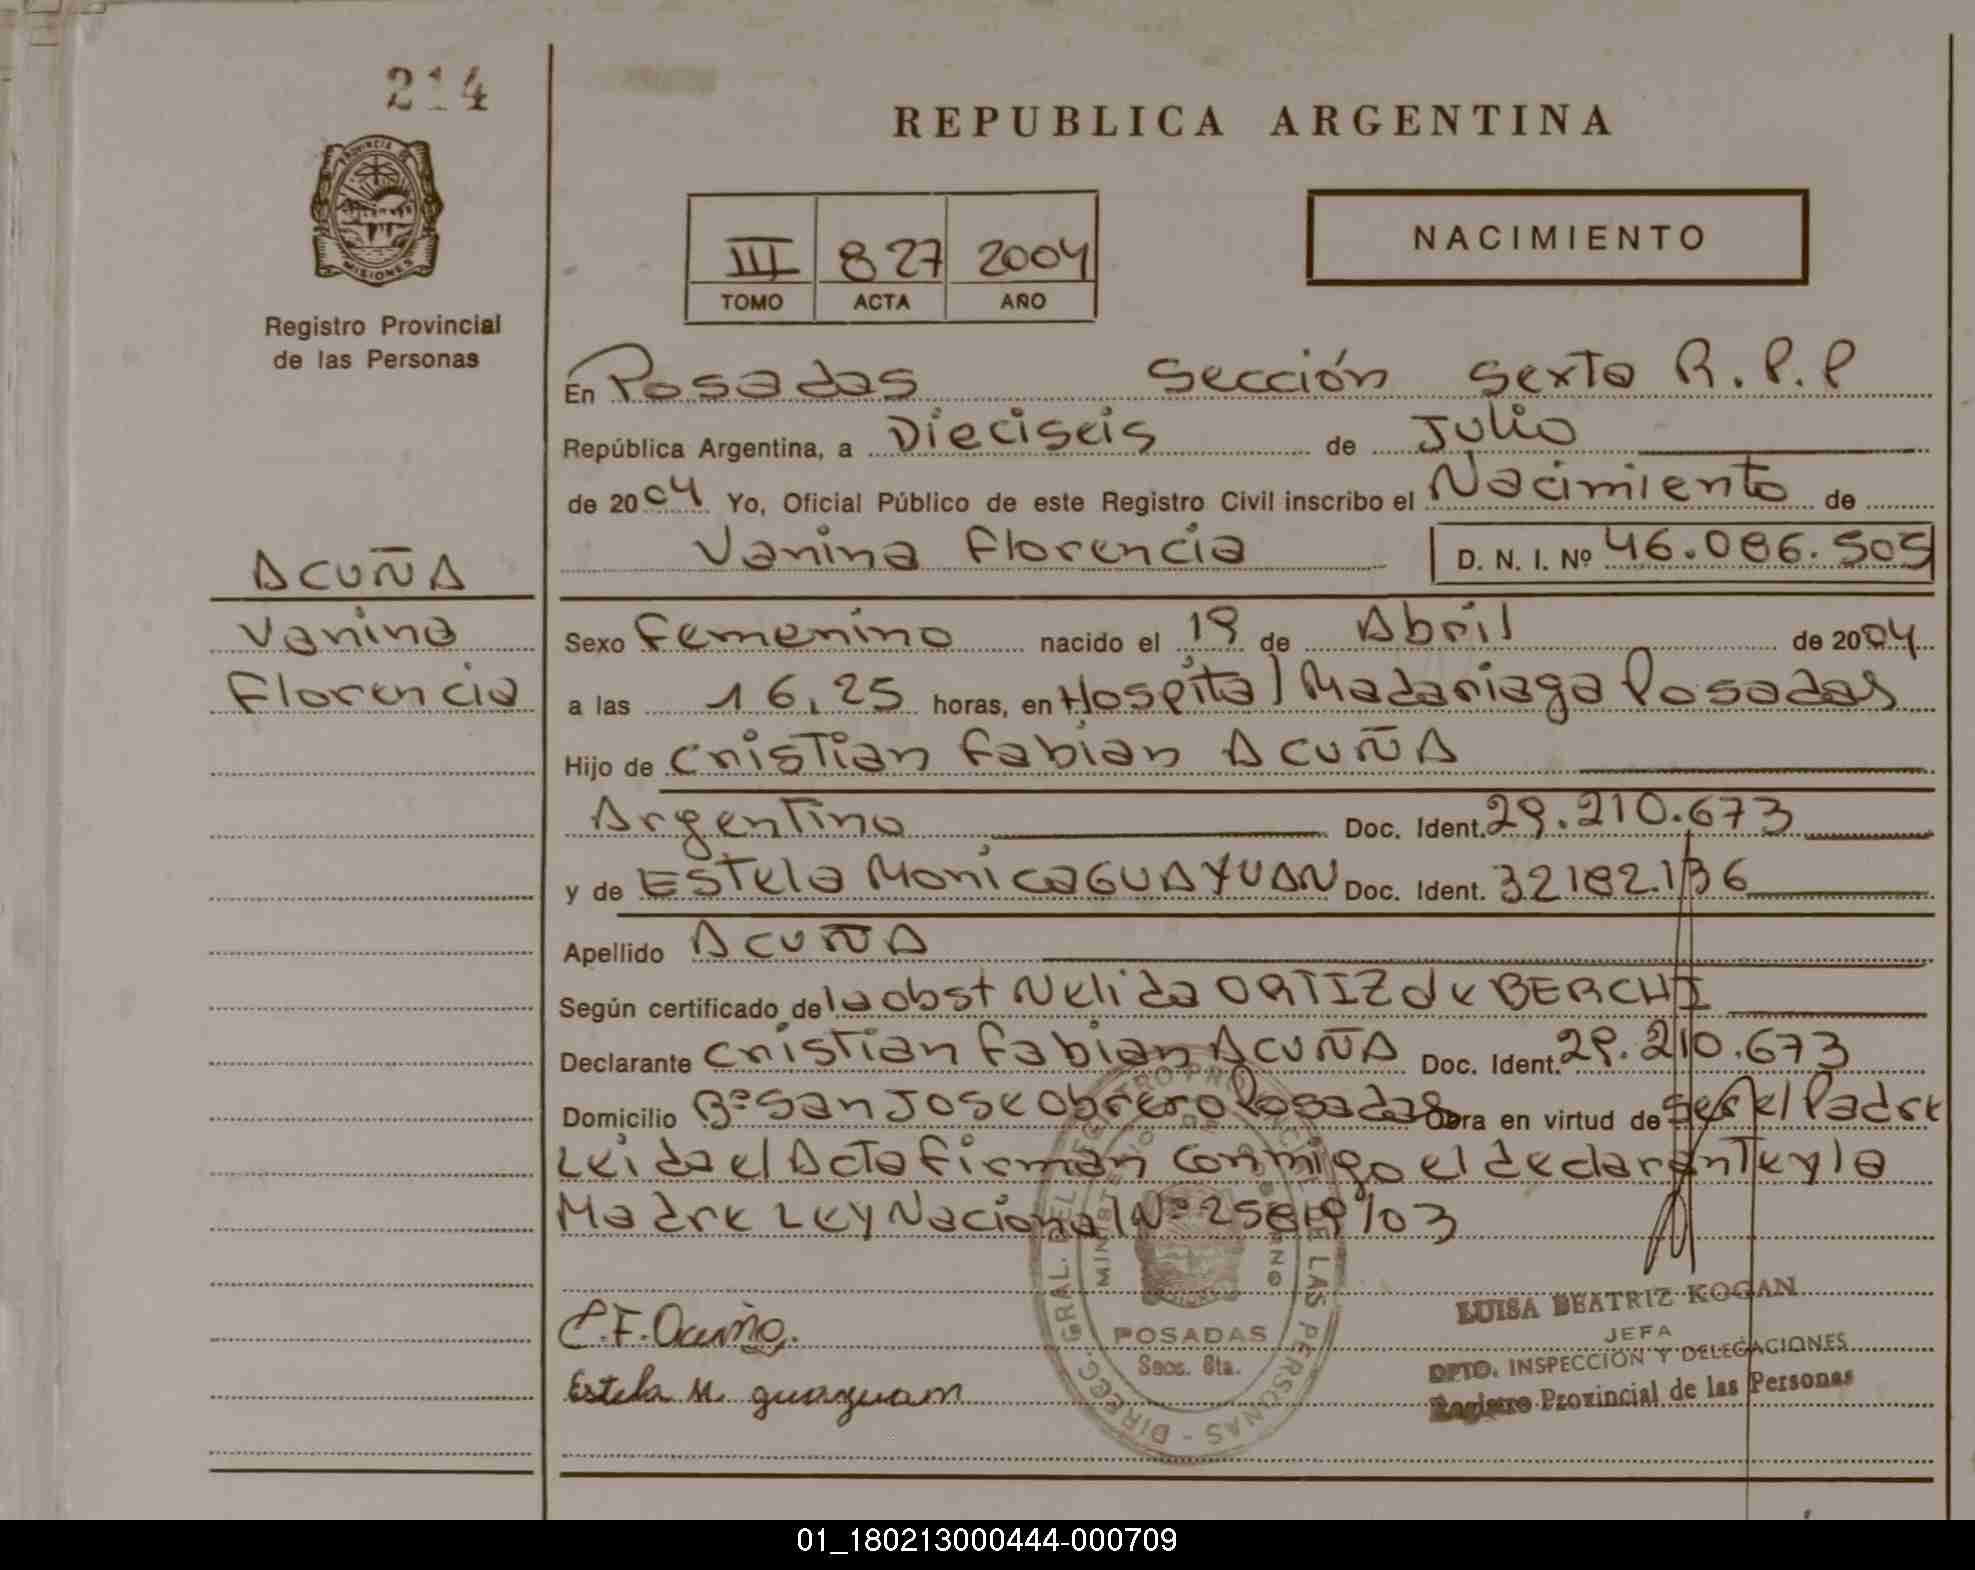 214
PROVINCIA DE
MISIONES
Registro Provincial
de las Personas
REPUBLICA ARGENTINA
NACIMIENTO
III 827 2004
TOMO ACTA AÑO
En Posadas Sección Sexta R.P.P
República Argentina, a Dieciseis de Julio
de 2004 Yo, Oficial Público de este Registro Civil inscribo el Nacimiento de
Vanina Florencia D. N. I. Nº 46.086.505
ACUÑA
Vanina
Florencia
Sexo Femenino nacido el 19 de Abril de 2004
a las 16,25 horas, en Hospital Madariaga Posadas
Hijo de Cristian Fabian ACUÑA
Argentino Doc. Ident. 29.210.673
y de Estela Monica GUAYUAN Doc. Ident. 32182.136
Apellido ACUÑA
Según certificado de la obst Nelida ORTIZ de BERCHI
Declarante Cristian Fabian ACUÑA Doc. Ident. 29.210.673
Domicilio Bº San Jose Obrero Posadas Obra en virtud de ser el Padre
Leida el Acta firman conmigo el declarante y la
Madre Ley Nacional Nº 25819/03
C.F. Acuña.
Estela M. guayuan
DIRECC. GRAL. DEL REGISTRO PROVINCIAL DE LAS PERSONAS
MINISTERIO DE GOBIERNO
POSADAS
Secc. 6ta.
LUISA BEATRIZ KOGAN
JEFA
DPTO. INSPECCIÓN Y DELEGACIONES
Registro Provincial de las Personas
01_180213000444-000709